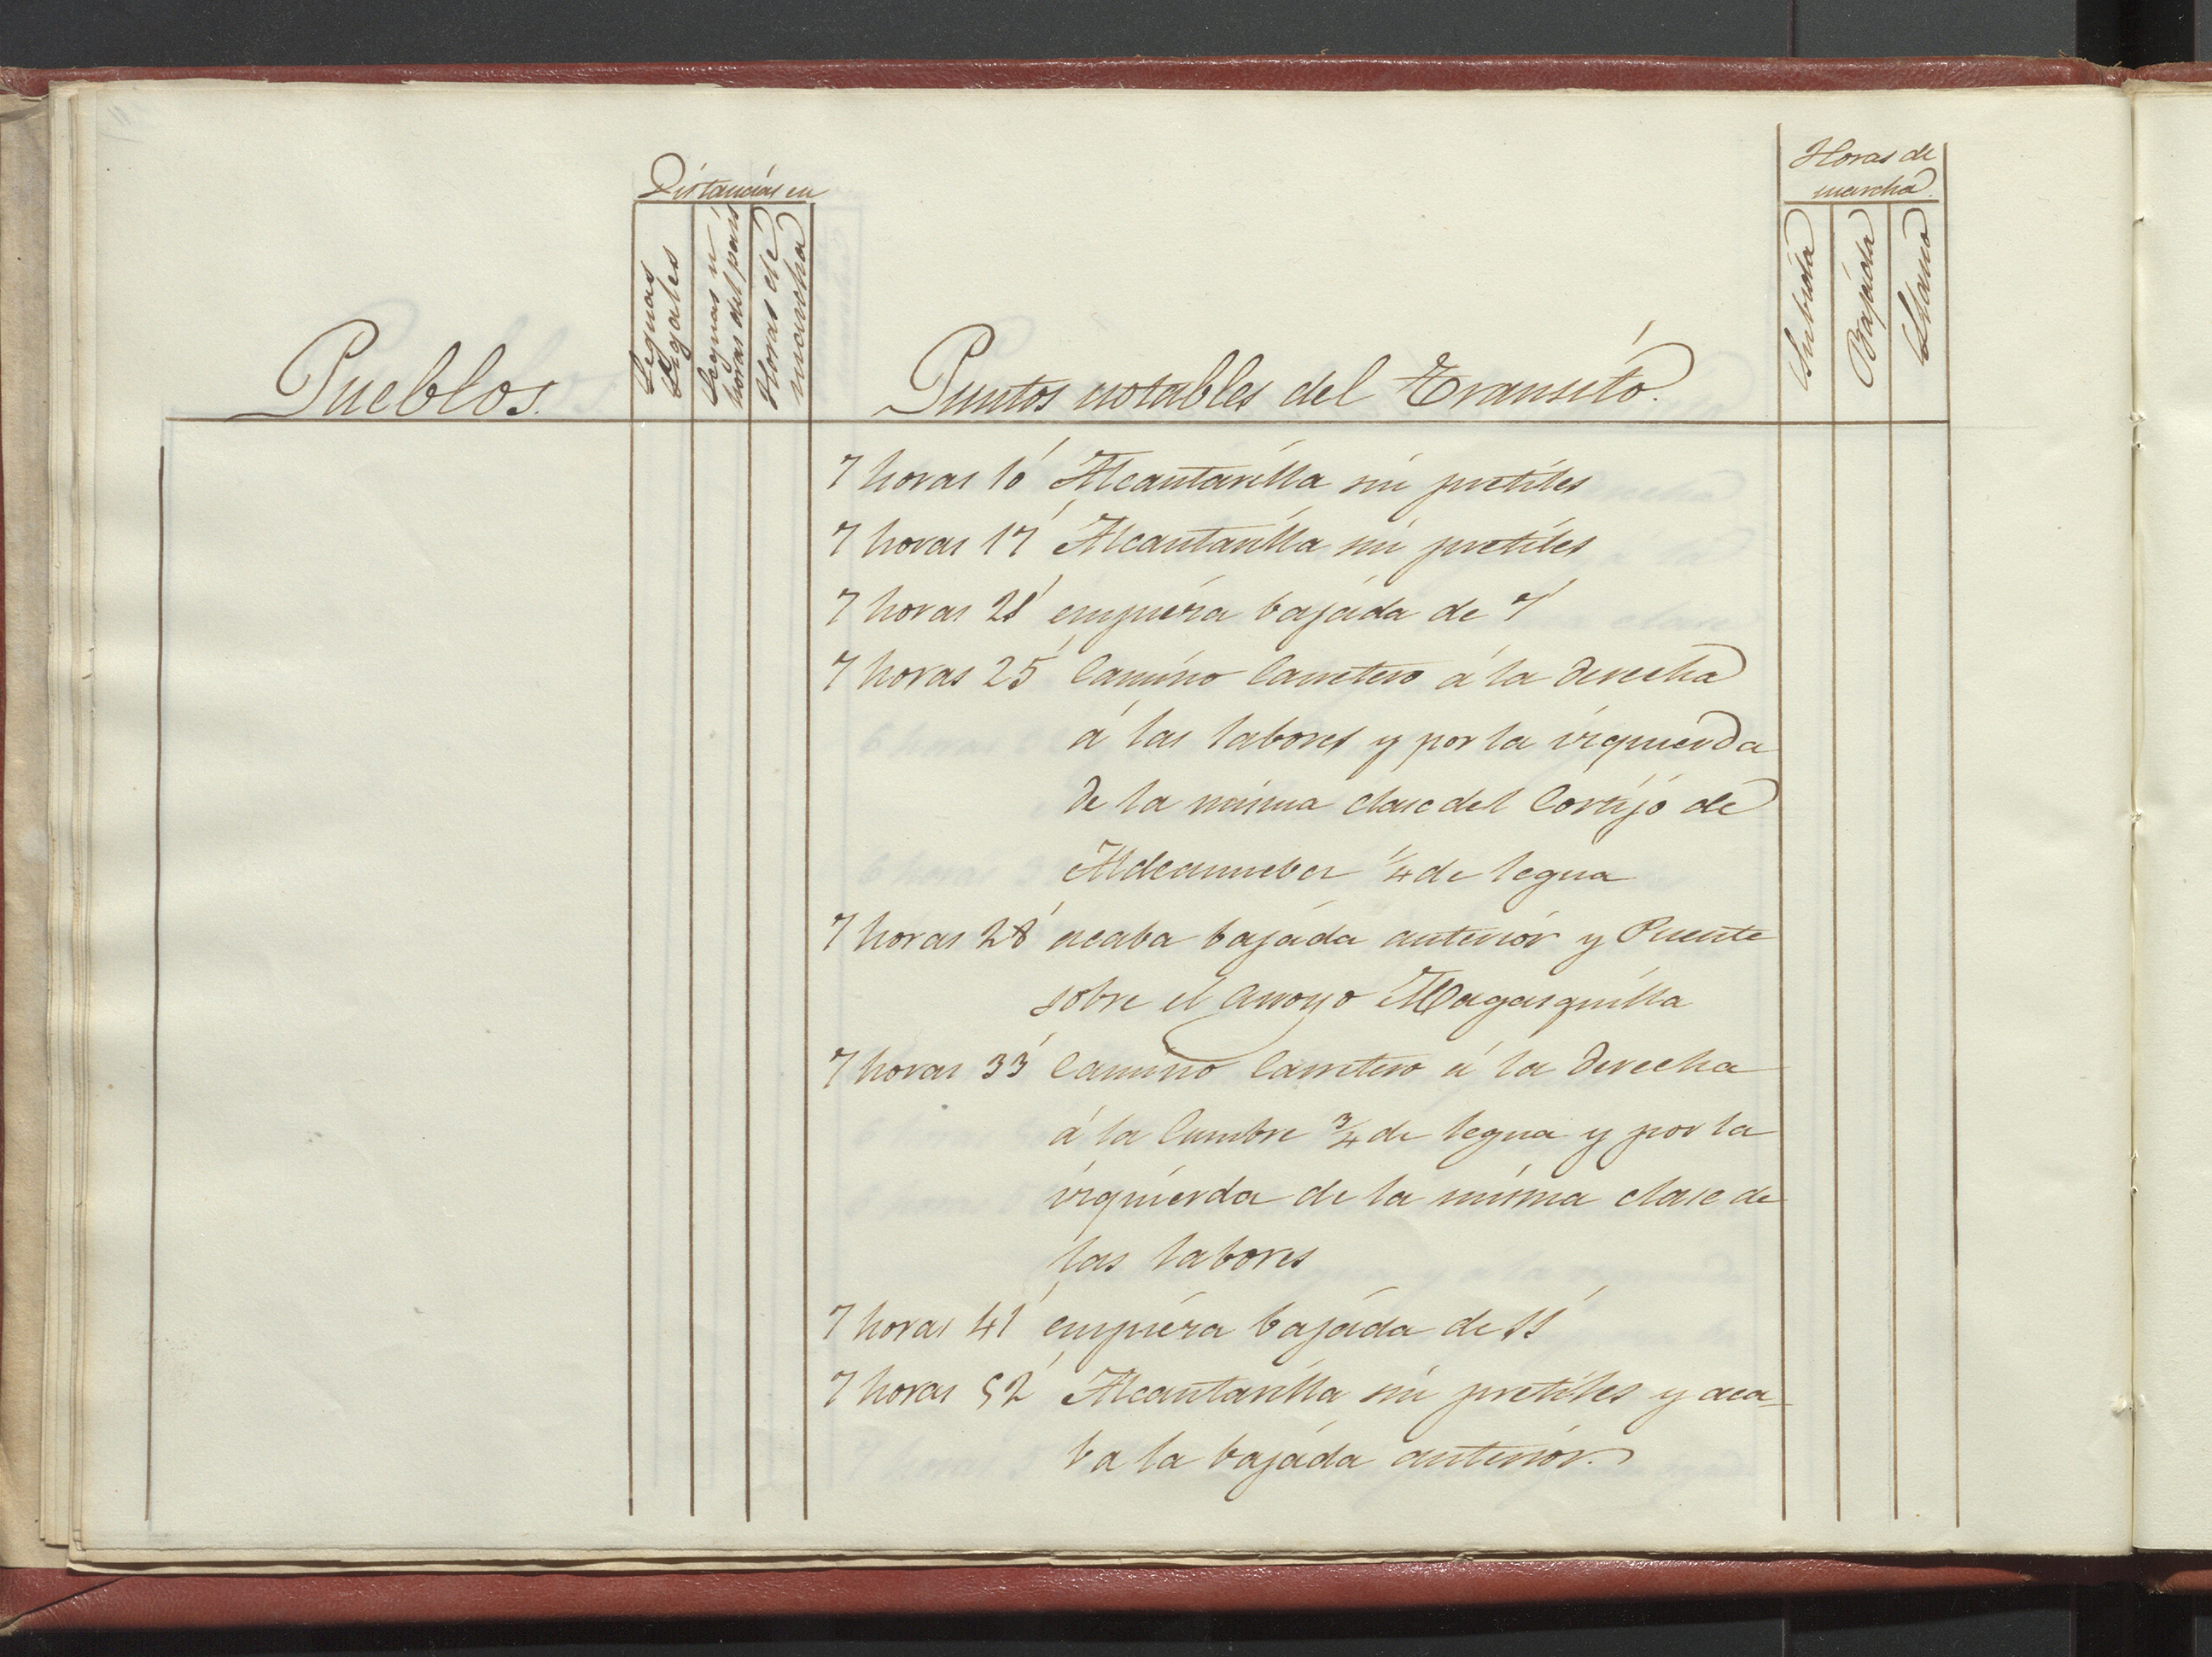 Distancias en
Leguas
Legales
Leguas u
horas del pais
Horas de
marcha
Horas de
marcha.
Subida
Bajada
Llano
Pueblos.
Puntos notables del Transito.
7 horas 10' Alcantarilla sin pretiles
7 horas 17' Alcantarilla sin pretiles
7 horas 21' empieza bajada de 7'
7 horas 25' Camino Carretero á la derecha
á las labores y por la izquierda
de la misma clase del Cortijo de
1/4 de legua
7 horas 28' acaba bajada anterior y Puente
sobre el arroyo Magasquilla
7 horas 33' Camino Carretero á la derecha
á la Cumbre 3/4 de legua y por la
izquierda de la misma clase de
las labores
7 horas 41' empieza bajada de 11'
7 horas 52' Alcantarilla sin pretiles y aca-
ba la bajada anterior.